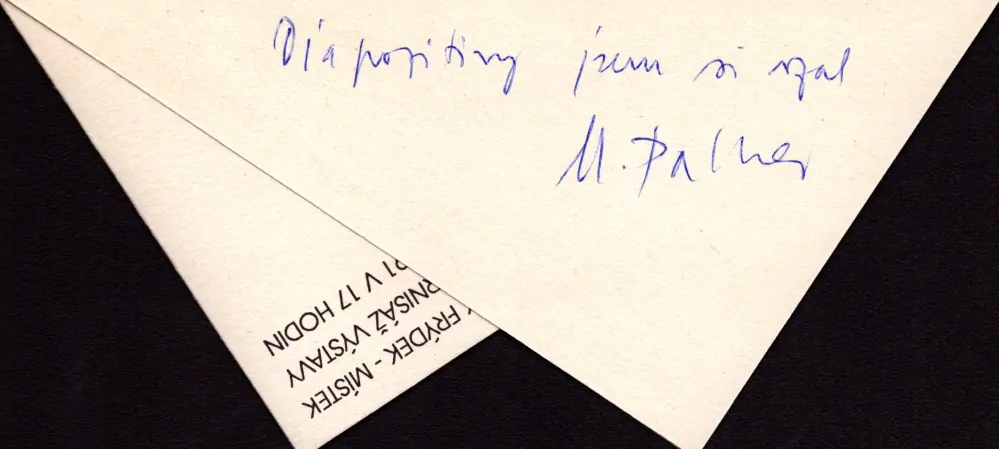 Diapozitivy jsem si vzal
M. Palner
FRÝDEK - MÍSTEK
RNISÁŽ VÝSTAVY
91 V 17 HODIN